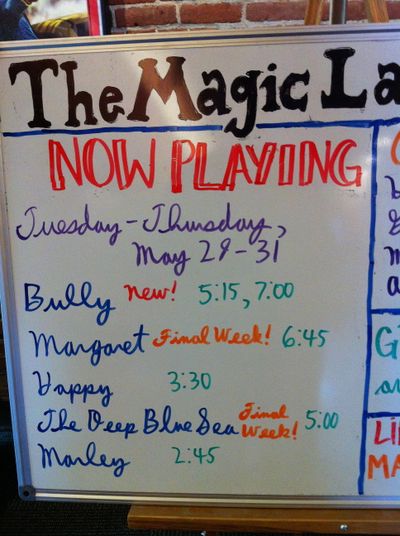 The Magic La
NOW PLAYING
Tuesday-Thursday,
May 29-31
Bully New! 5:15, 7:00
Margaret Final Week! 6:45
Happy 3:30
The Deep Blue Sea Final Week! 5:00
Marley 2:45
G
LI
MA